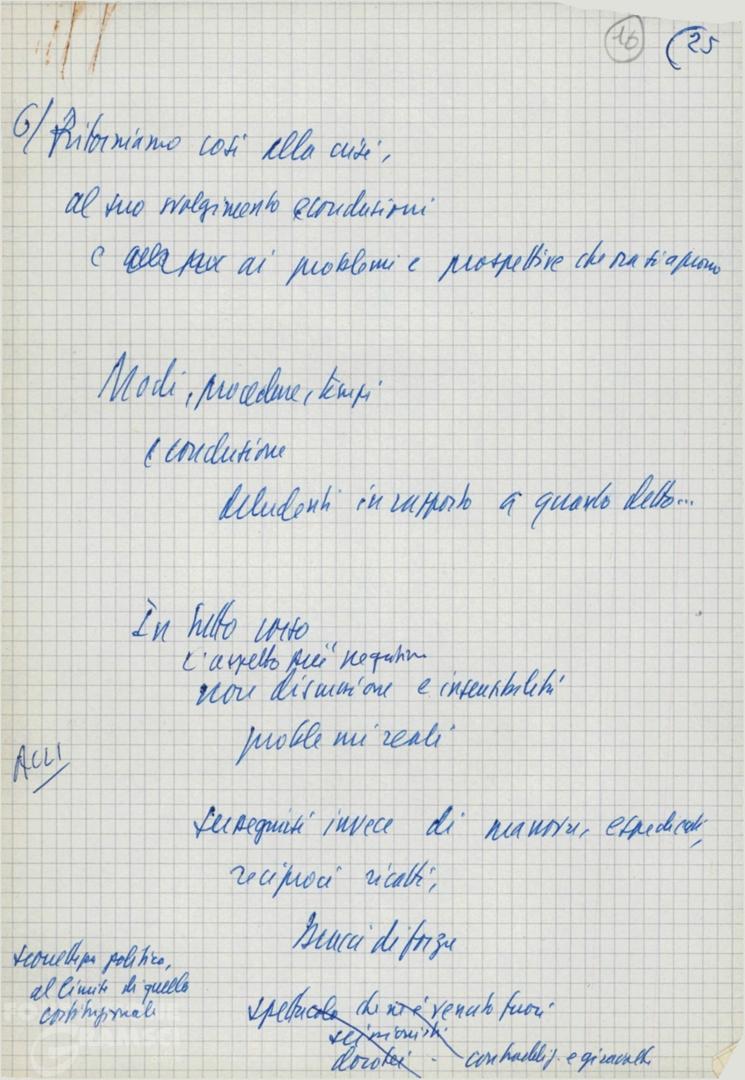 16
25
6/ Ritorniamo così alla crisi,
al suo svolgimento e conclusioni
e ai problemi e prospettive che ora si aprono
Modi, procedure, tempi
e conclusione
deludenti in rapporto a quanto detto...
In tutto corso
L'aspetto più negativo
non discussione e insensibilità
problemi reali
ACLI
susseguirsi invece di manovre, espedienti,
reciproci ricatti,
Bracci di forza
scorrettezza politica,
al limite di quella
costituzionale
spettacolo che ne è venuto fuori
scissionisti
dorotei - contraddiz. e giravolte